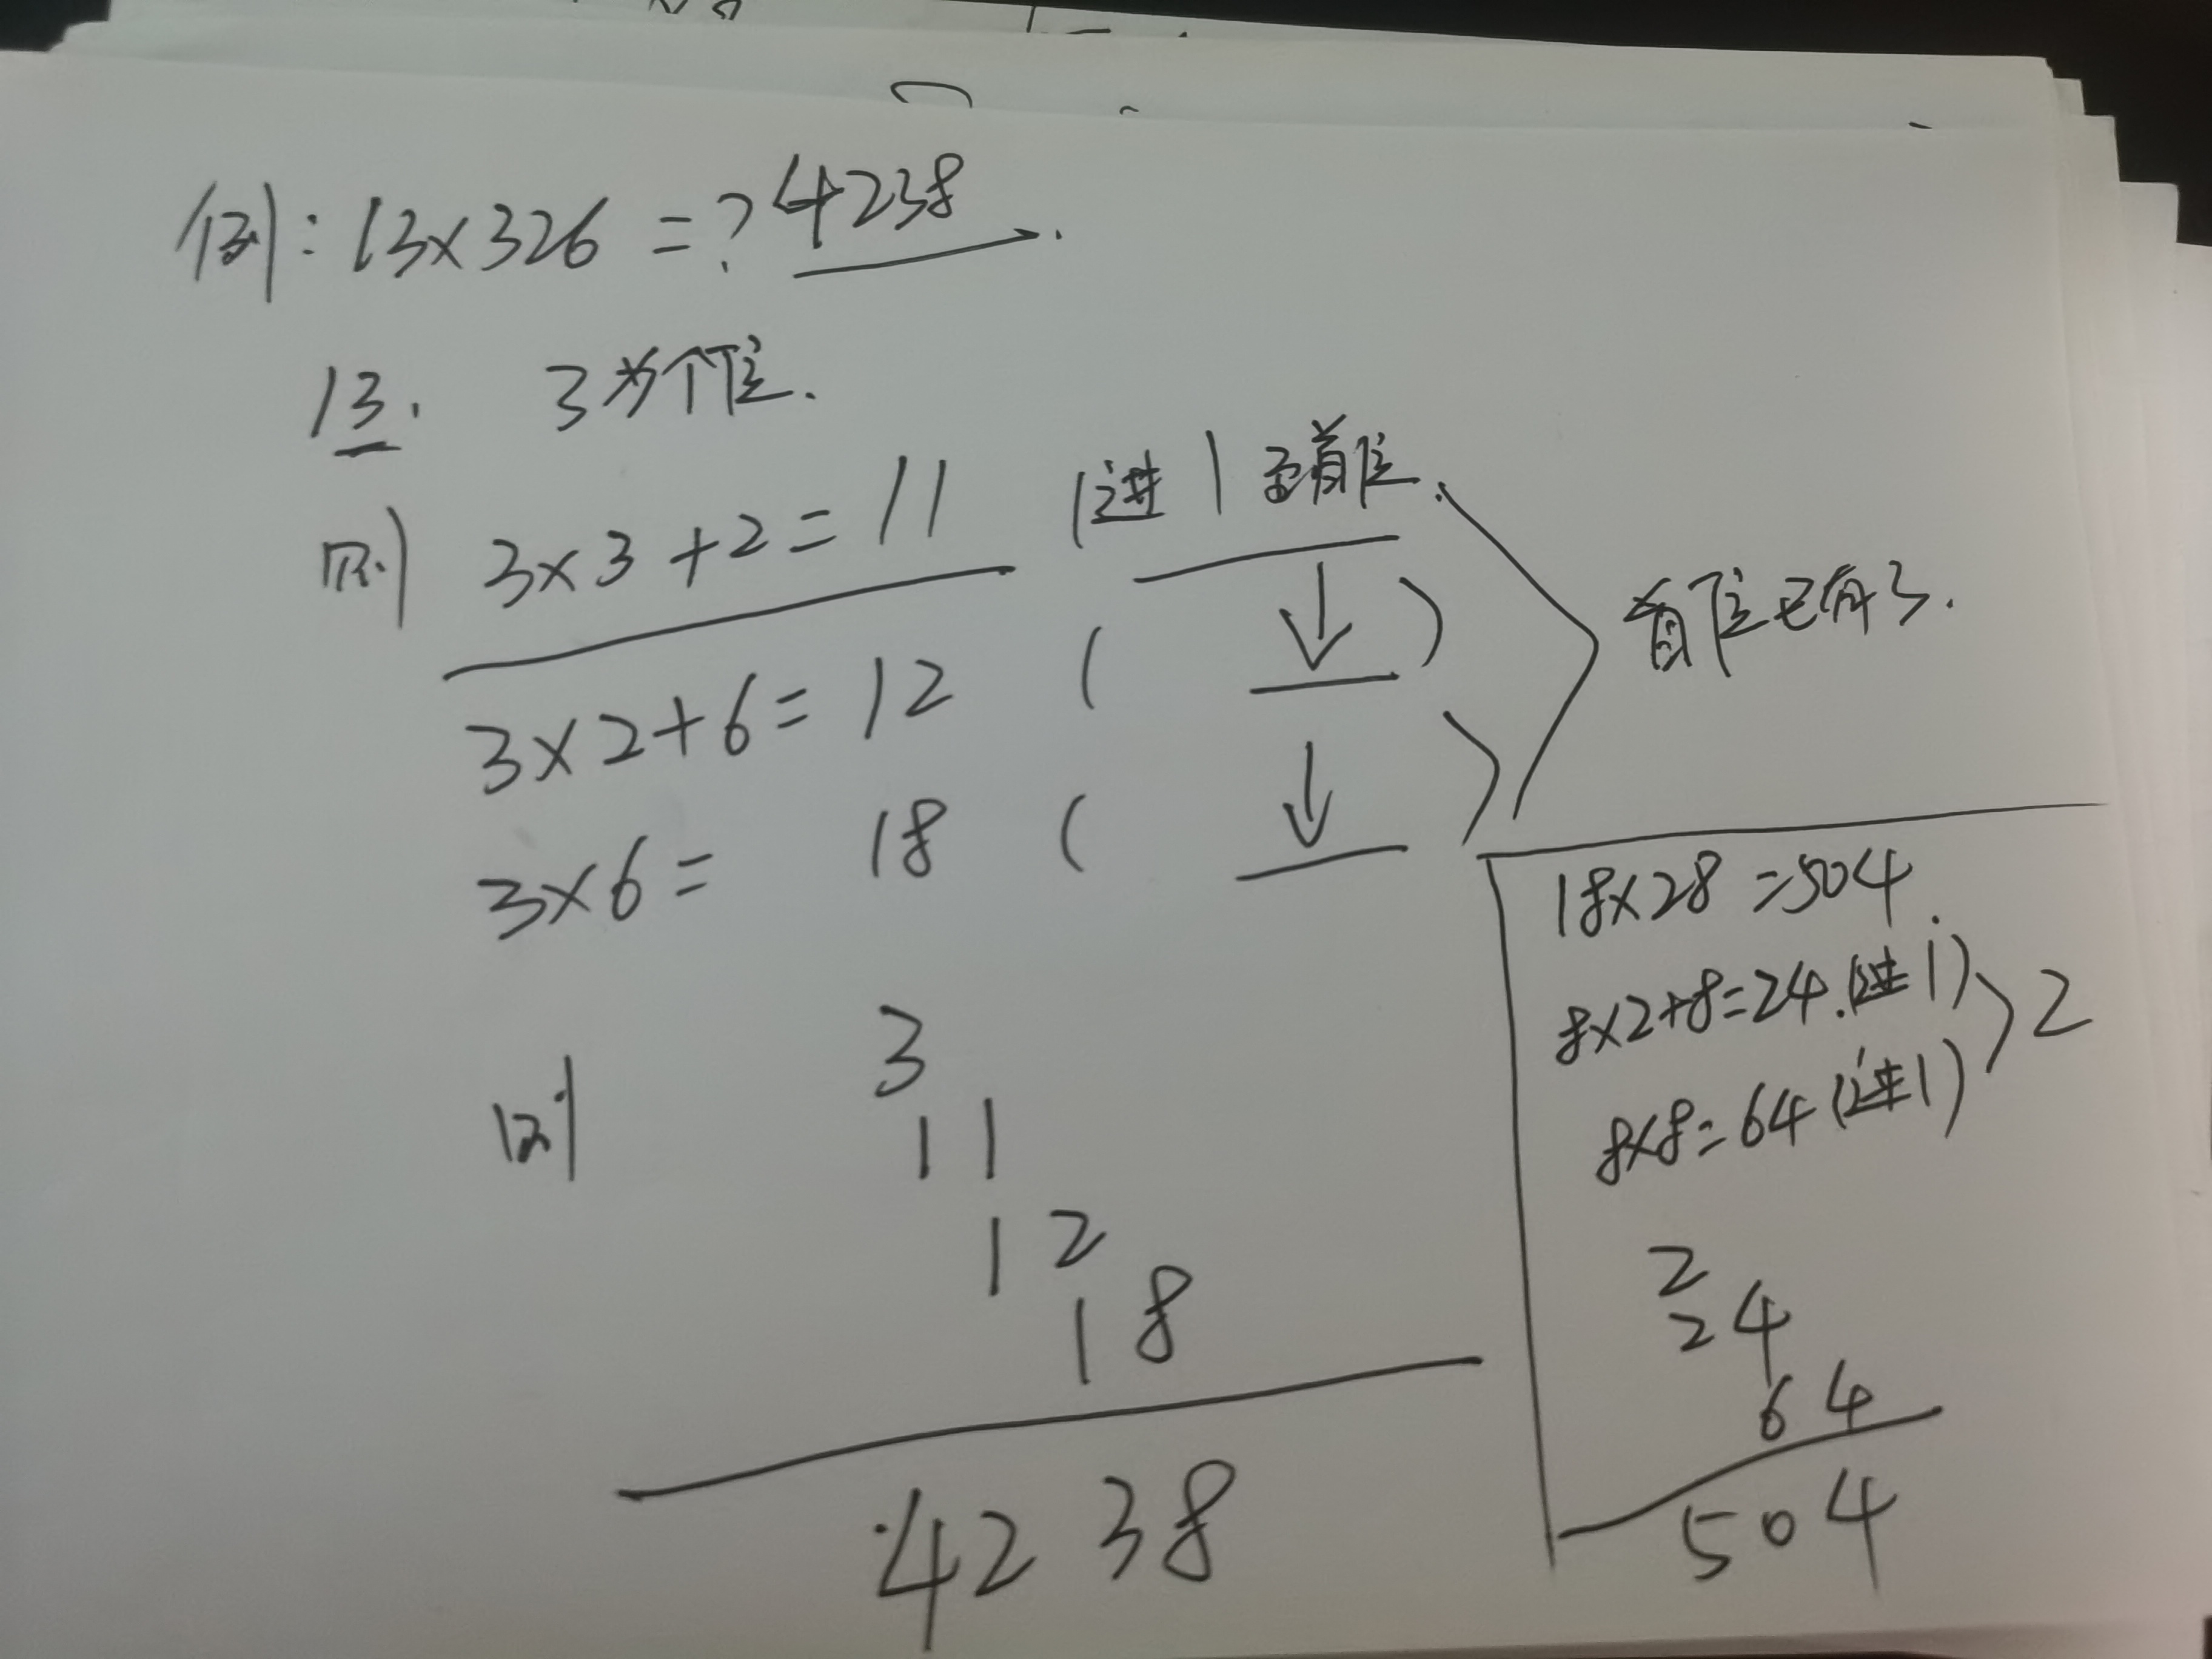 例：13×326 =？4238.
13. 3为个位.
则 3×3+2=11 (进1至首位.
3×2+6=12 ( ↓ )
3×6= 18 ( ↓ )
首位已有3.
则 3
11
12
18
4238
18×28=504.
8×2+8=24.(进1)
8×8=64(进1)
2
2
24
64
504